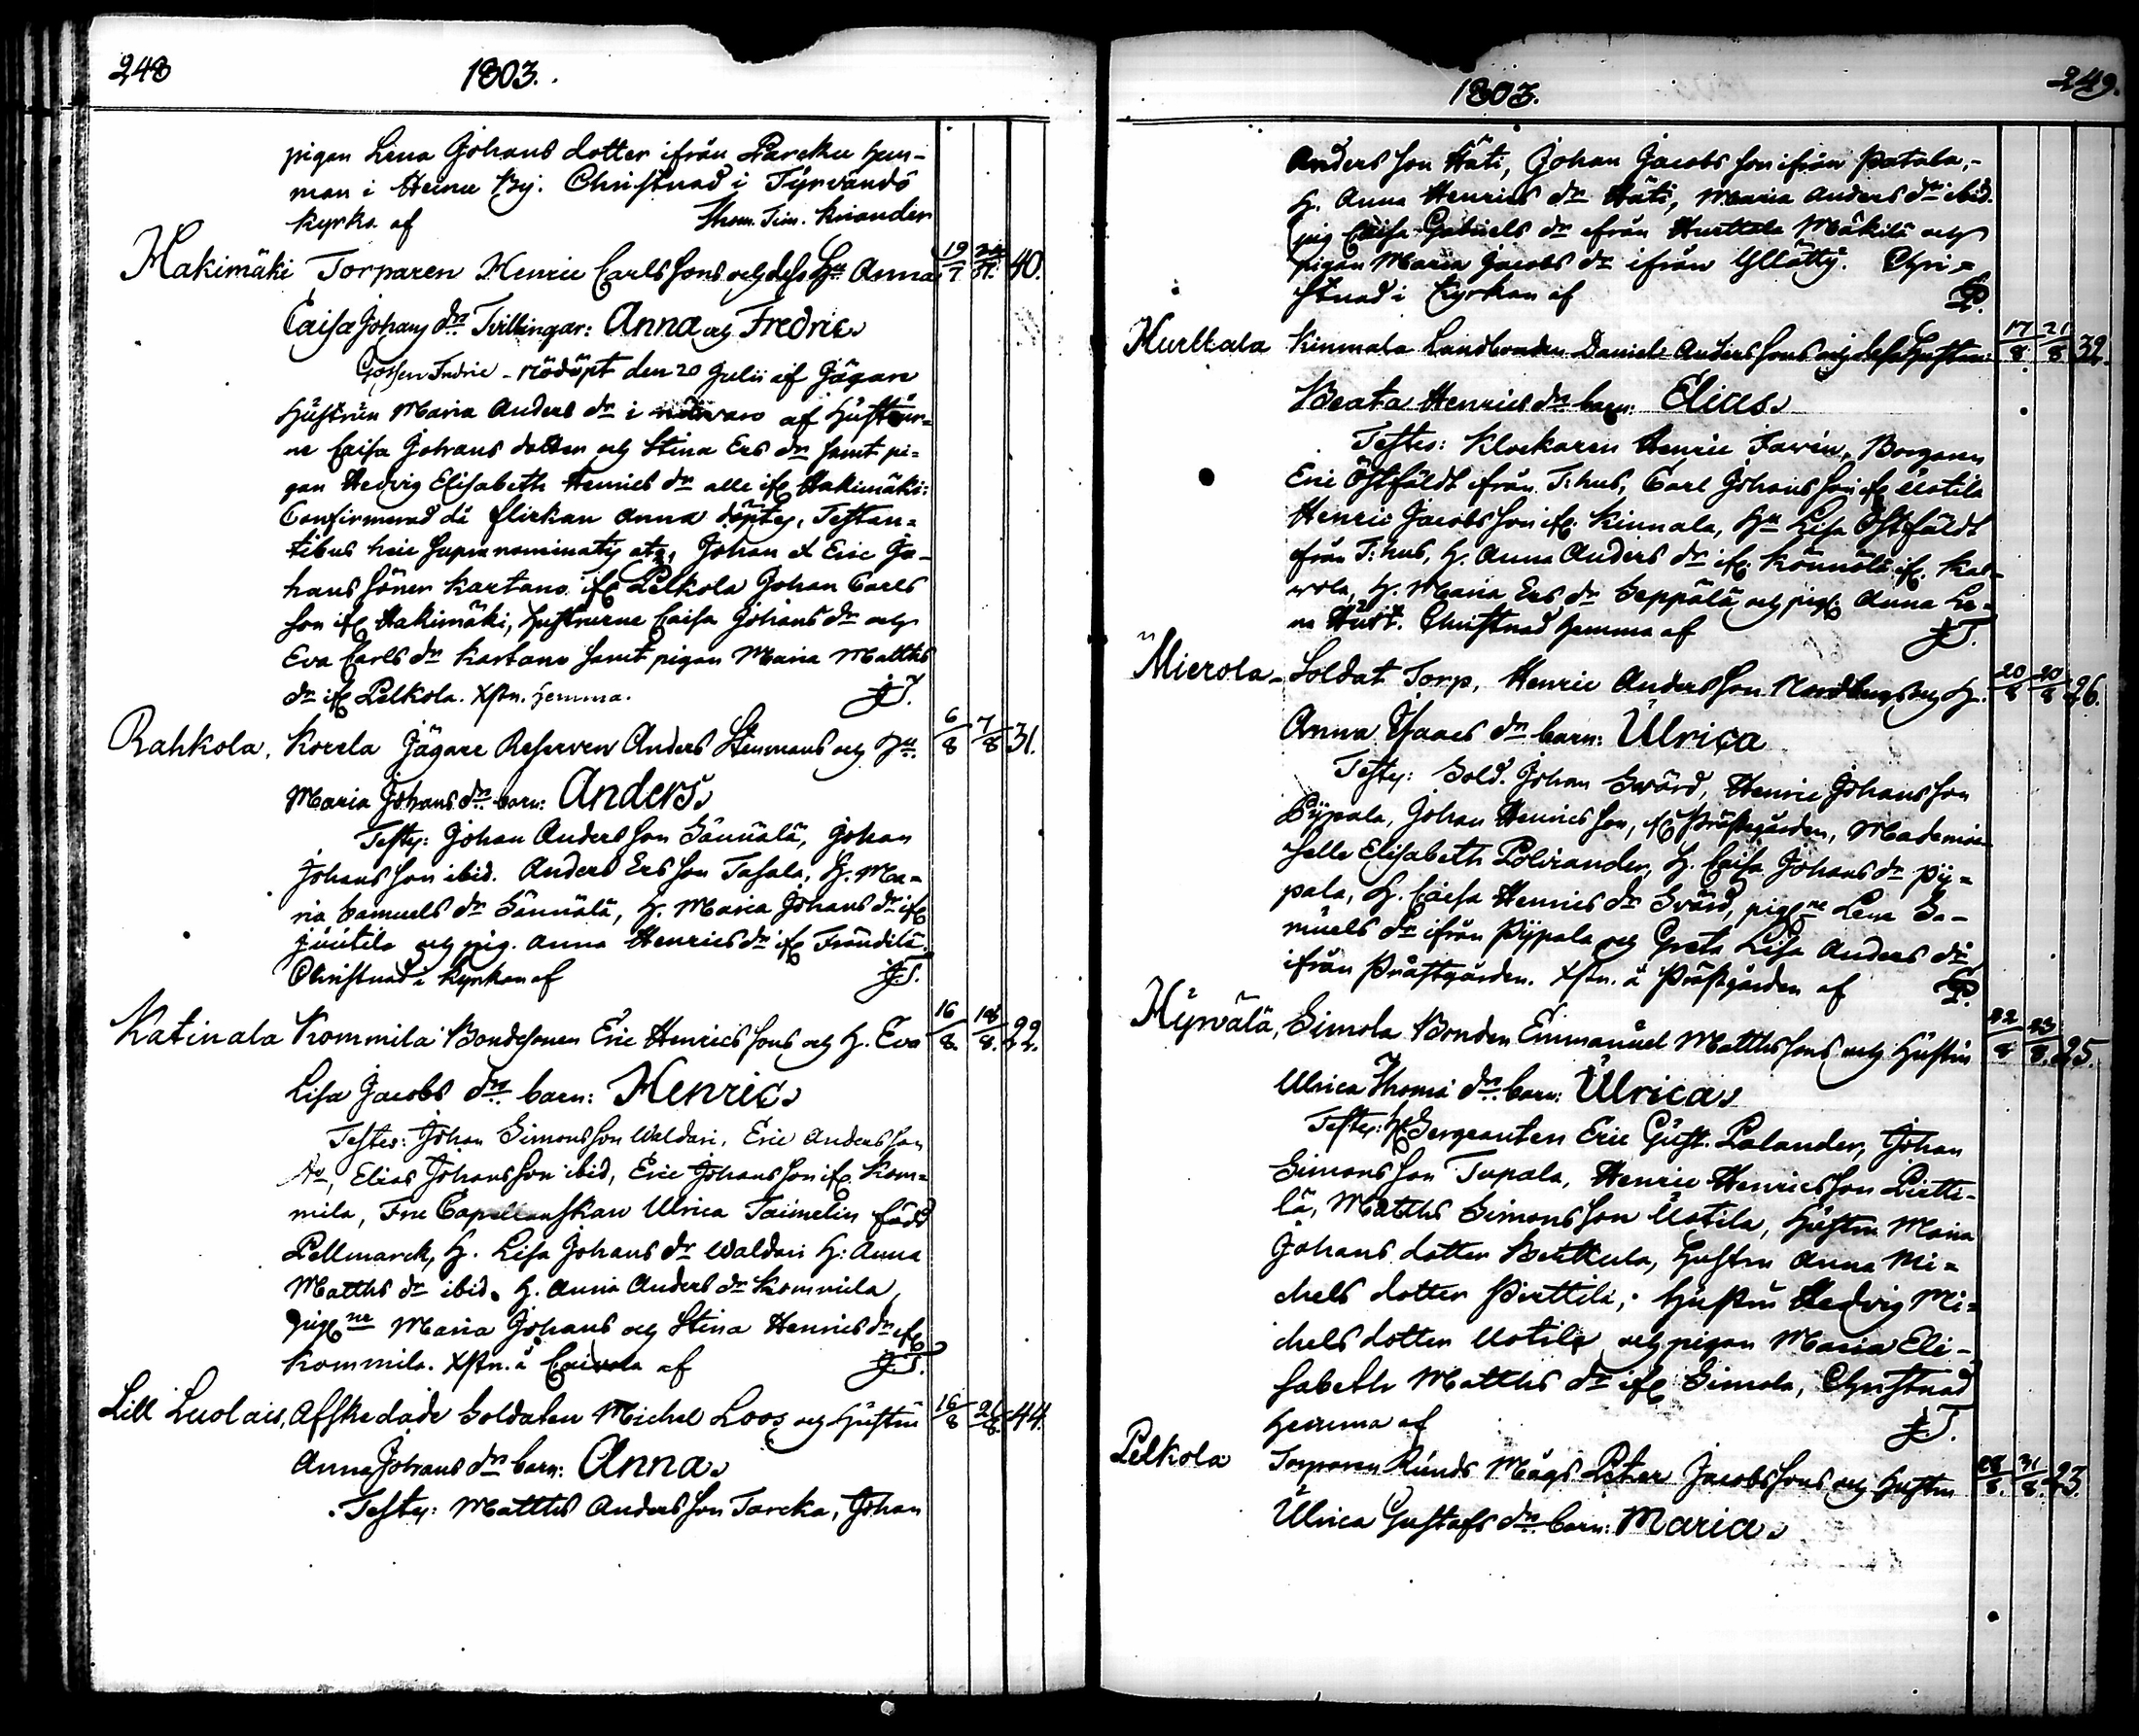 248
1803.
pigan Lena Johans dotter ifrån Parcku hem-
man i Heinu By. Christnad i Tyrvändö
Kyrka af Thom. Tim. Kriander
Hakimäki Torparen Henric Carls sons och dess H:u Anna 19/7 40.
Caisa Johans d:rs Tvillingar: Anna och Fredric.
Gossen Fredric - Nödöpt den 20 Julii af Jägare
Hustrun Maria Anders d:r i närwaro af Hustrur-
ne Caisa Johans dotter och Stina Ers d:r samt pi-
gan Hedvig Elisabeth Henrics d:r alle ifr Hakimäki:
Confirmerad då flickan Anna döptes, Testan-
tibus heic supra nominatis atq, Johan et Eric Jo-
hans söner Kartano ifr Pelkola Johan Carls
son ifr Hakimäki, Hustrurne Caisa Johans d:r och
Eva Carls d:r Kartano samt pigan Maria Matths
d:r ifr Pelkola. Xstn. hemma. J.T.
Rahkola, Korela Jägare Reserven Anders Stenmans och H:u 6/8 7/8 31.
Maria Johans d:rs barn: Anders.
Testes: Johan Anders son Sännälä, Johan
Johans son ibid. Anders Ers son Tasala, H. Ma-
ria Samuels d:r Sännälä, H. Maria Johans d:r ifr
Juutila och pig. Anna Henrics d:r ifr Frändilä.
Christnad i Kyrkan af J.T.
Katinala Kommila Bondesonen Eric Henrics sons och H. Eva 16/8. 18/8. 22.
Lisa Jacobs d:rs barn: Henric.
Testes: Johan Simons son Waldari, Eric Anders son
Elias Johans son ibid, Eric Johans son ifr. Kom-
mila, Fru Capellanskan Ulrica Taimelin född
Pellmarck, H. Lisa Johans d:r Waldari H: Anna
Matths d:r ibid. H. Anna Anders d:r Kommila,
pig:ne Maria Johans och Stina Henrics d:r ifr
Kommila. Xstn. å af J.T.
Lill Luolais, Afskedade Soldaten Michel Loos och Hustru 16/8 21/8 44.
Anna Johans d:rs barn: Anna.
Testes: Matths Anders son Tarcka, Johan
1803.
249.
Anders son Häti, Johan Jacobs son ifrån Patala,-
H. Anna Henrics d:r Häti, Maria Anders d:r ibid.
pig Caisa Gabriels d:r ifrån Hurttala Mäkilä och
pigan Maria Jacobs d:r ifrån Yllätty. Chri-
stnad i Kyrkan af
Hurttala Kinnala Landbonden Daniel Anders sons och dess Hustru 17/8. 21/8 32.
Beata Henrics d:rs barn: Elias.
Testes: Klockaren Henric Favrin, Borgaren
Eric Östfäldt ifrån T:hus, Carl Johans son ifr Uotila
Henric Jacobs son ifr. Kinnala, H:u Lisa Östfäldt
ifrån T:hus, H. Anna Anders d:r ifr. Könnölä ifr. Kat-
H. Maria Ers d:r Seppälä och pig. Anna Le-
na Hüst. Christnad hemma af J.T.
Mierola - Soldat Torp, Henric Anders son Nordbergs och H. 20/8 20/8 26.
Anna Isaacs d:rs barn: Ulrica
Testes: Sold. Johan Swärd, Henric Johans son
Pyypala, Johan Henrics son, ifr Prästgården, Mademoi-
selle Elisabeth Polviander, H. Caisa Johans d:r Pyy-
pala, H. Caisa Henrics d:r Svärd, pig:ne Lena Sa-
muels d:r ifrån Pyypala och Greta Lisa Anders d:r
ifrån Prästgården. Xstn. å Prästgården af
Hyrvälä, Simola Bonden Emmanuel Matths sons och Hustru 22/8 23/8. 25.
Ulrica Thomæ d:rs barn: Ulrica.
Testes: Hr Sergeanten Eric Gust. Palander, Johan
Simons son Tupala, Henric Henrics son Pietti-
lä, Matths Simons son Uotila, Hustru Maria
Johans dotter Bertkula, Hustru Anna Mi-
chels dotter Pirttilä, Hustru Hedvig Mi-
chels dotter Uotila och pigan Maria Eli-
sabeth Matths d:r ifr Simola, Christnad
hemma af J.T.
Pelkola Torparen Runds Mågs Peter Jacobs sons och Hustru 28/8. 31/8. 23.
Ulrica Gustafs d:rs barn: Maria.